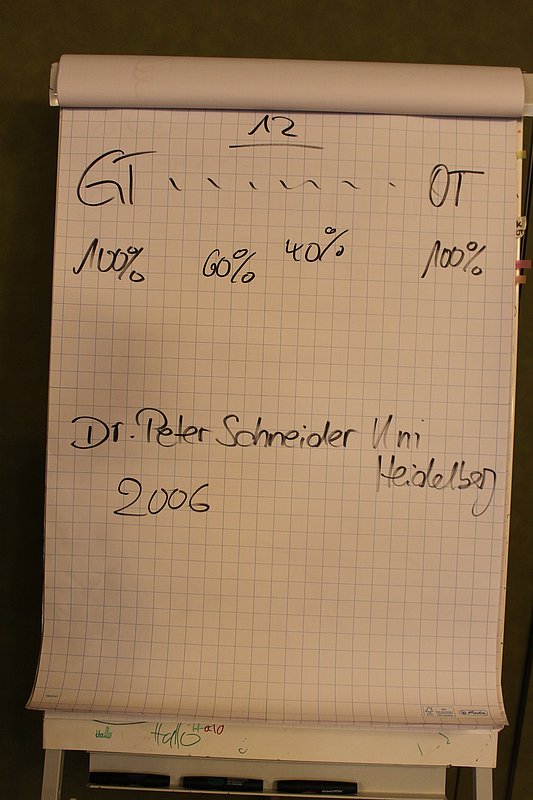 12
GT OT
100% 60% 40% 100%
Dr. Peter Schneider Uni
Heidelberg
2006
Hallo Hallo